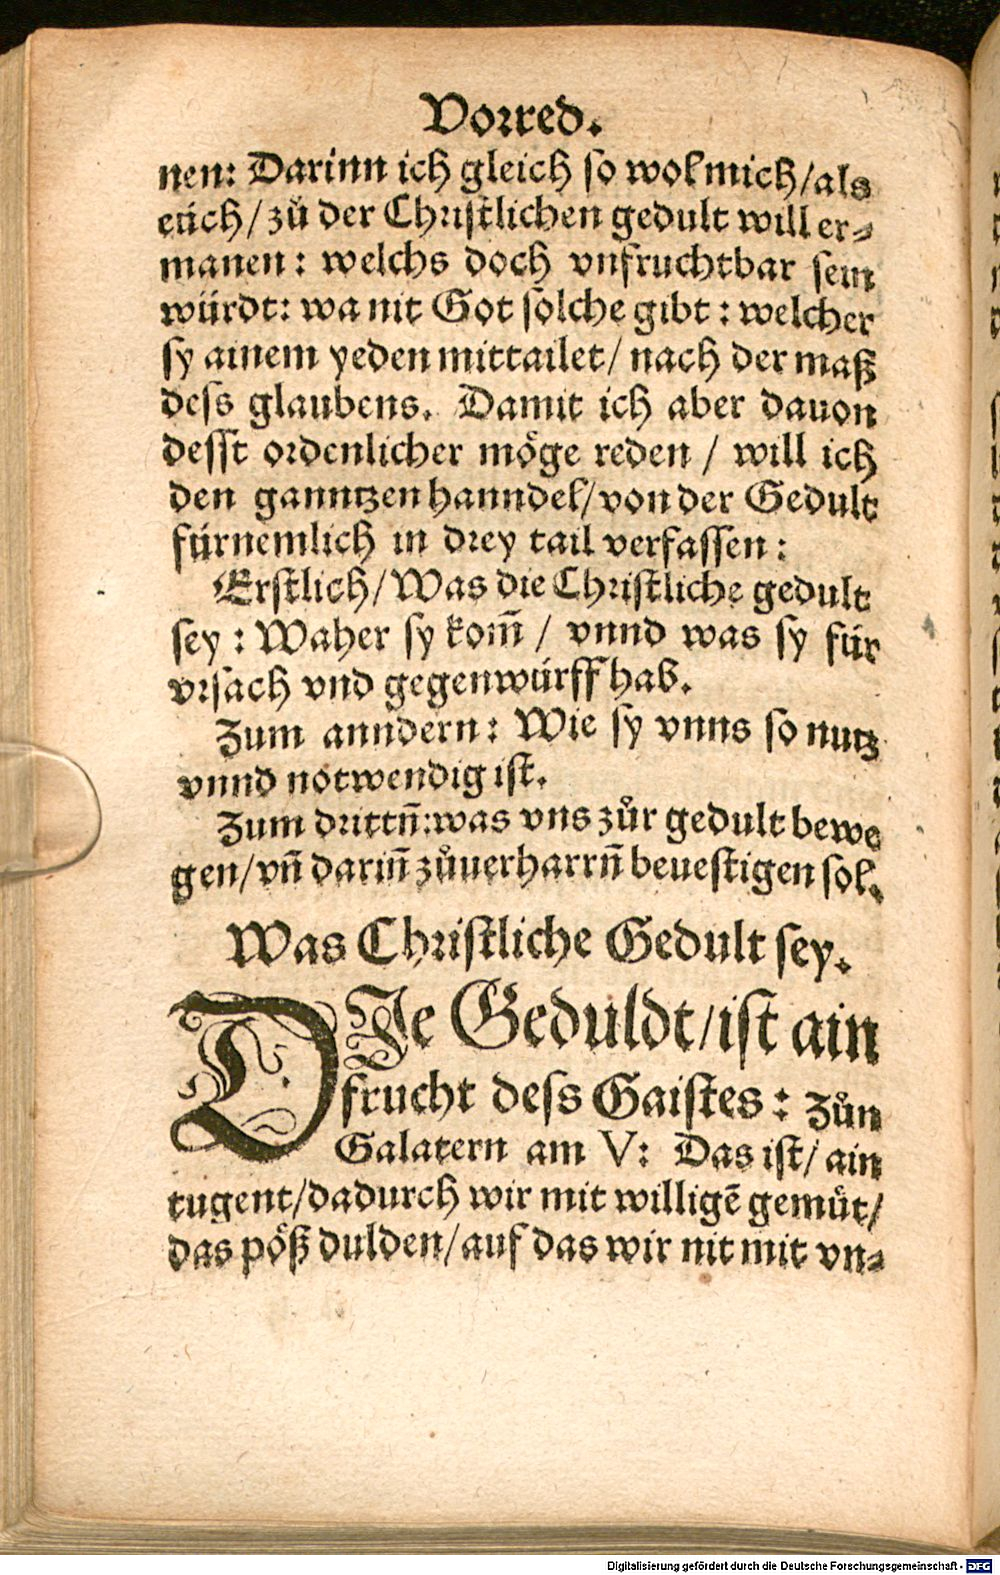 Vorred.
nen: Darinn ich gleich so wol mich/als
eüch/zů der Christlichen gedult will er-
manen: welchs doch vnfruchtbar sein
würdt: wa nit Got solche gibt: welcher
sy ainem yeden mittailet/ nach der maß
dess glaubens. Damit ich aber dauon
desst ordenlicher möge reden / will ich
den ganntzen hanndel/von der Gedult
fürnemlich in drey tail verfassen:
Erstlich/Was die Christliche gedult
sey: Waher sy kom̃ / vnnd was sy für
vrsach vnd gegenwürff hab.
Zum anndern: Wie sy vnns so nutz
vnnd notwendig ist.
Zum drittñ:was vns zůr gedult bewe
gen/vñ darin̄ zůuerharrñ beuestigen sol.
Was Christliche Gedult sey.
DIe Geduldt/ist ain
frucht dess Gaistes: Zůn
Galatern am V: Das ist/ ain
tugent/dadurch wir mit willigē gemůt/
das pöß dulden/auf das wir nit mit vn-
Digitalisierung gefördert durch die Deutsche Forschungsgemeinschaft - DFG